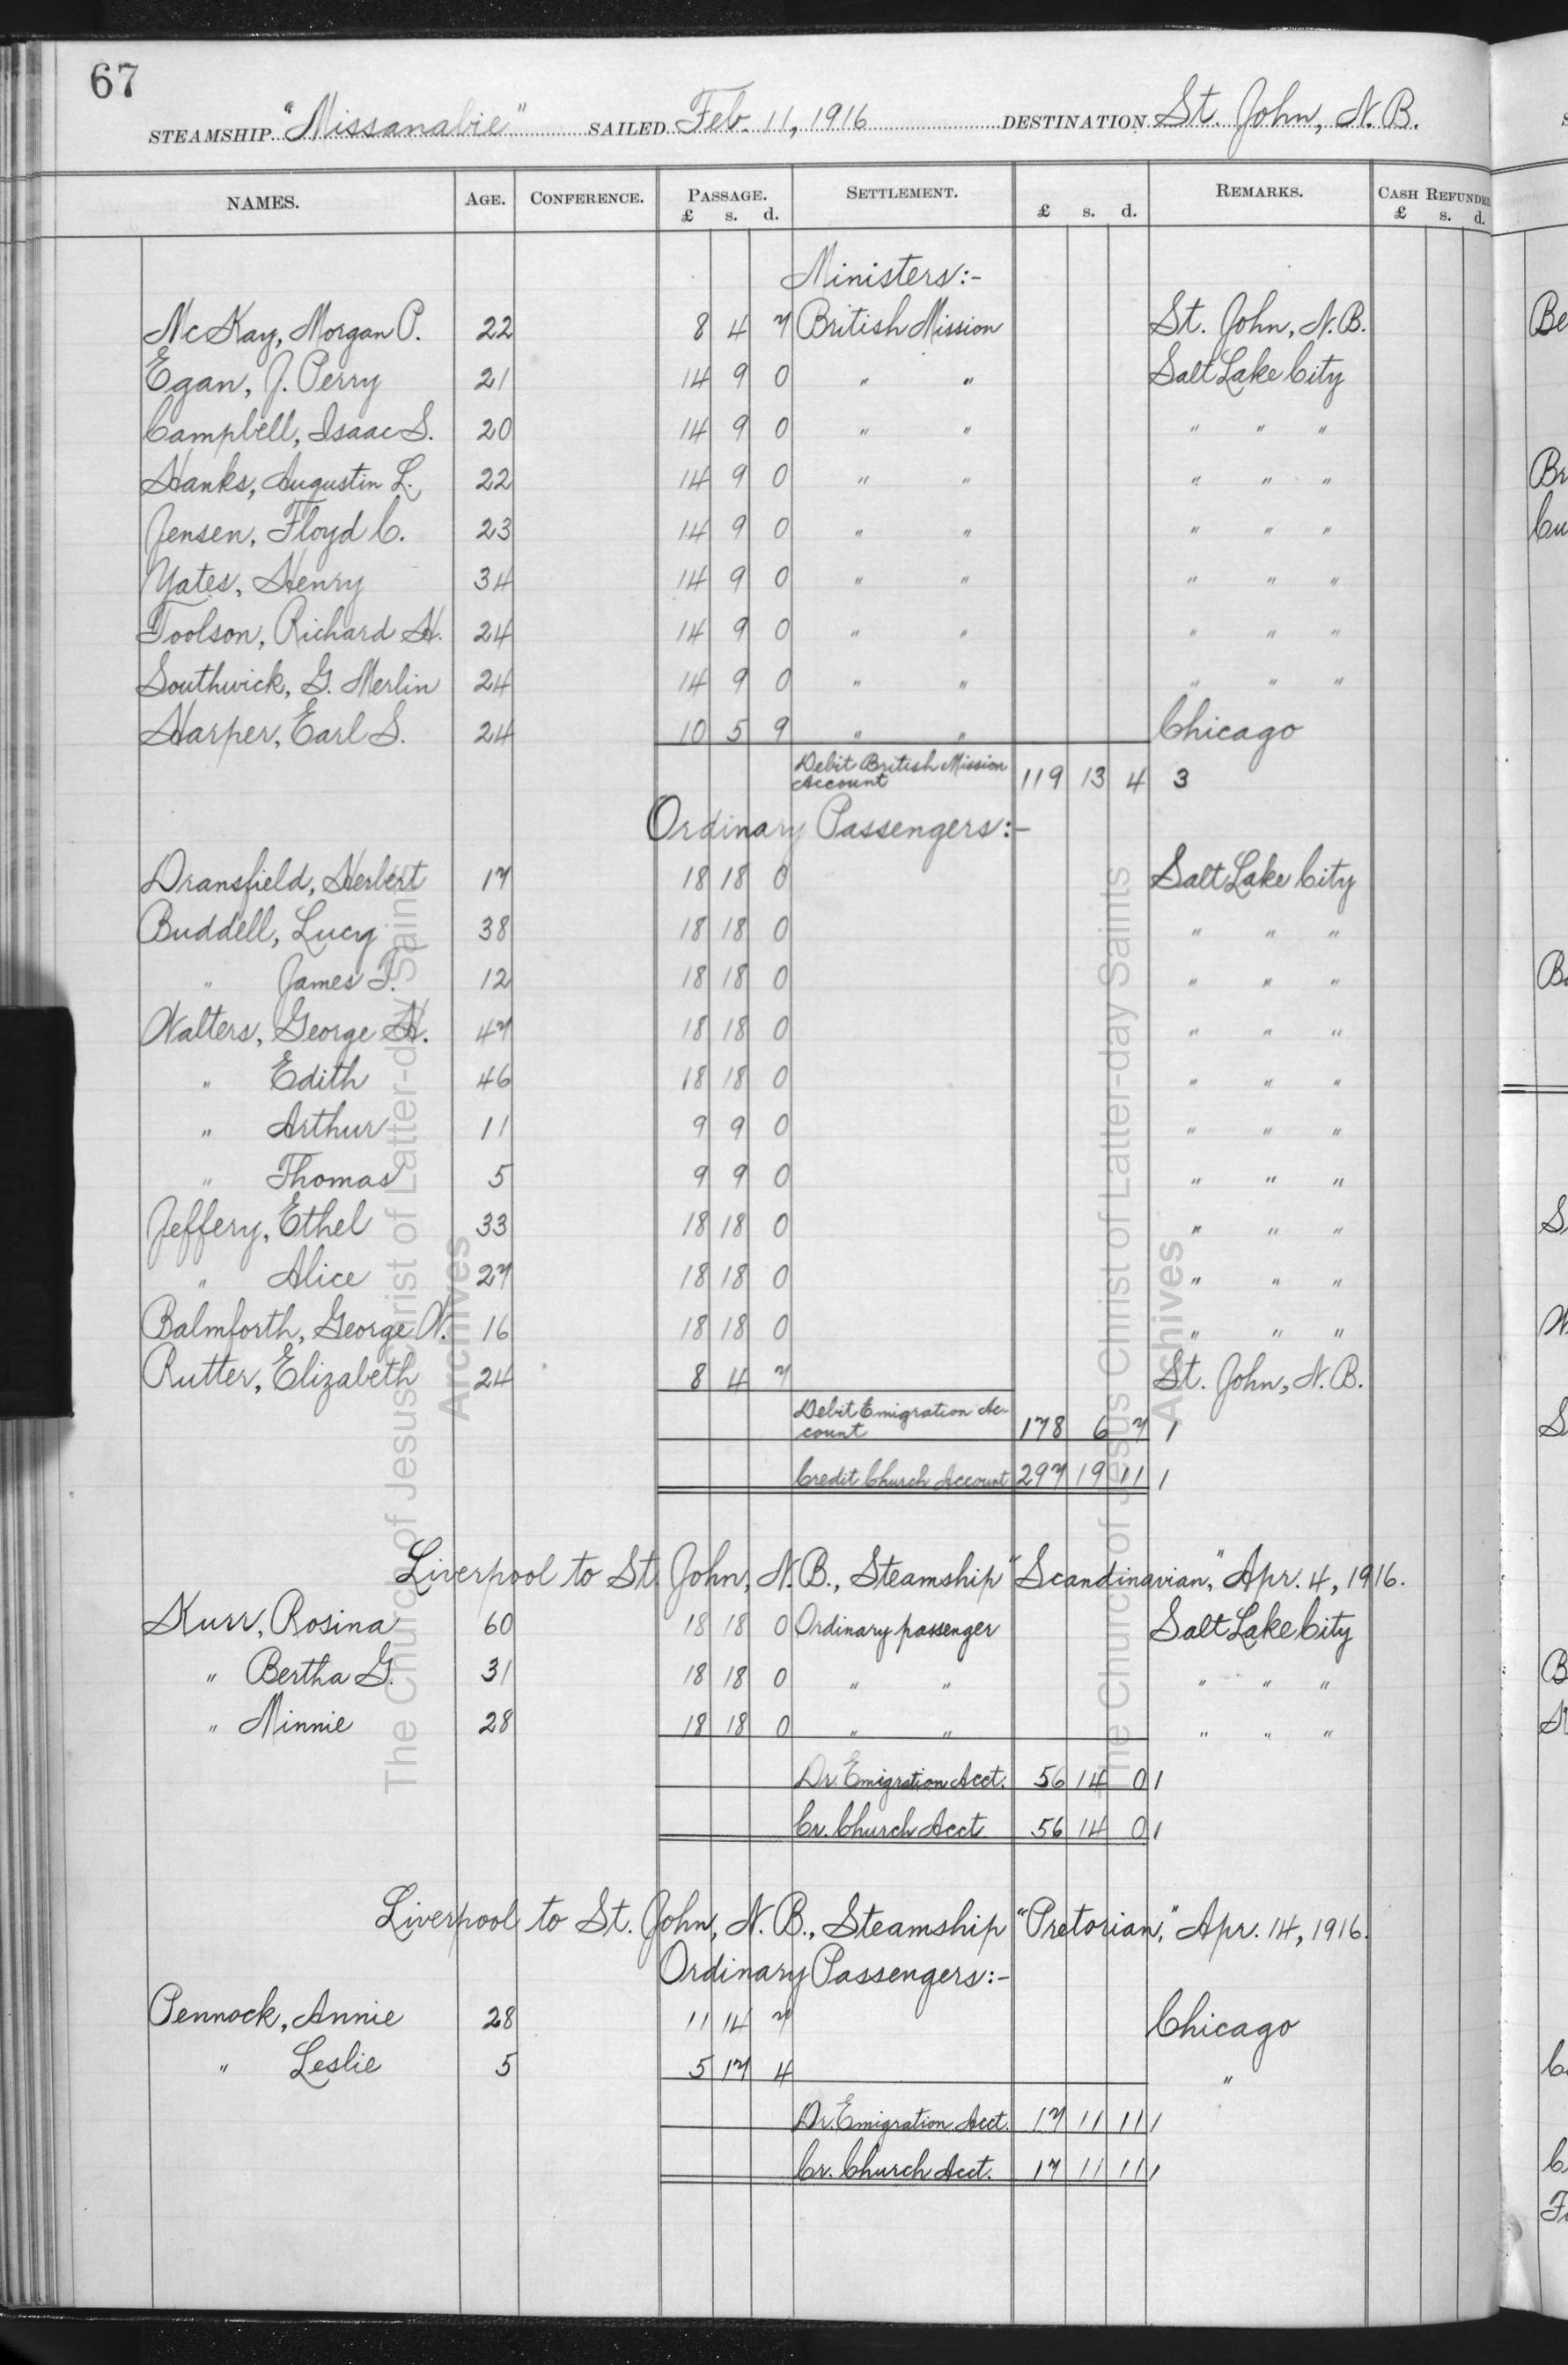 67
STEAMSHIP "Missanabie" SAILED Feb. 11, 1916 DESTINATION St. John, N.B.
NAMES. AGE. CONFERENCE. PASSAGE. SETTLEMENT. REMARKS. CASH REFUNDED
£ s. d. £ s. d. £ s. d.
Ministers:-
McKay, Morgan P. 22 8 4 7 British Mission St. John, N.B.
Egan, J. Perry 21 14 9 0 " " Salt Lake City
Campbell, Isaac S. 20 14 9 0 " " " " "
Hanks, Augustin L. 22 14 9 0 " " " " "
Jensen, Floyd C. 23 14 9 0 " " " " "
Yates, Henry 34 14 9 0 " " " " "
Toolson, Richard H. 24 14 9 0 " " " " "
Southwick, G. Merlin 24 14 9 0 " " " " "
Harper, Earl S. 24 10 5 9 " " Chicago
Debit British Mission
Account 119 13 4 3
Ordinary Passengers:-
Dransfield, Herbert 17 18 18 0 Salt Lake City
Buddell, Lucy 38 18 18 0 " " "
" James T. 12 18 18 0 " " "
Walters, George H. 47 18 18 0 " " "
" Edith 46 18 18 0 " " "
" Arthur 11 9 9 0 " " "
" Thomas 5 9 9 0 " " "
Jeffery, Ethel 33 18 18 0 " " "
" Alice 27 18 18 0 " " "
Balmforth, George W. 16 18 18 0 " " "
Rutter, Elizabeth 24 8 4 7 St. John, N.B.
Debit Emigration Ac-
count 178 6 7 1
Credit Church Account 297 19 11 1
Liverpool to St. John, N.B., Steamship "Scandinavian," Apr. 4, 1916.
Kurr, Rosina 60 18 18 0 Ordinary passenger Salt Lake City
" Bertha G. 31 18 18 0 " " " " "
" Minnie 28 18 18 0 " " " " "
Dr. Emigration Acct. 56 14 0 1
Cr. Church Acct. 56 14 0 1
Liverpool to St. John, N.B., Steamship "Pretorian," Apr. 14, 1916.
Ordinary Passengers:-
Pennock, Annie 28 11 14 7 Chicago
" Leslie 5 5 17 4 "
Dr. Emigration Acct. 17 11 11 1
Cr. Church Acct. 17 11 11 1
The Church of Jesus Christ of Latter-day Saints
Archives
The Church of Jesus Christ of Latter-day Saints
Archives